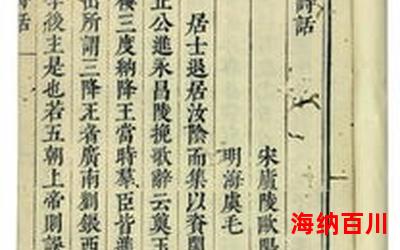 詩話
宋廬陵歐陽
明海虞毛
居士退居汝陰而集以資閒
正公進永昌陵挽歌辭云奠玉
樓三度納降王當時羣臣皆進
出所謂三降王者廣南劉鋹西
後主是也若五朝上帝則謬
詩話
海纳百川